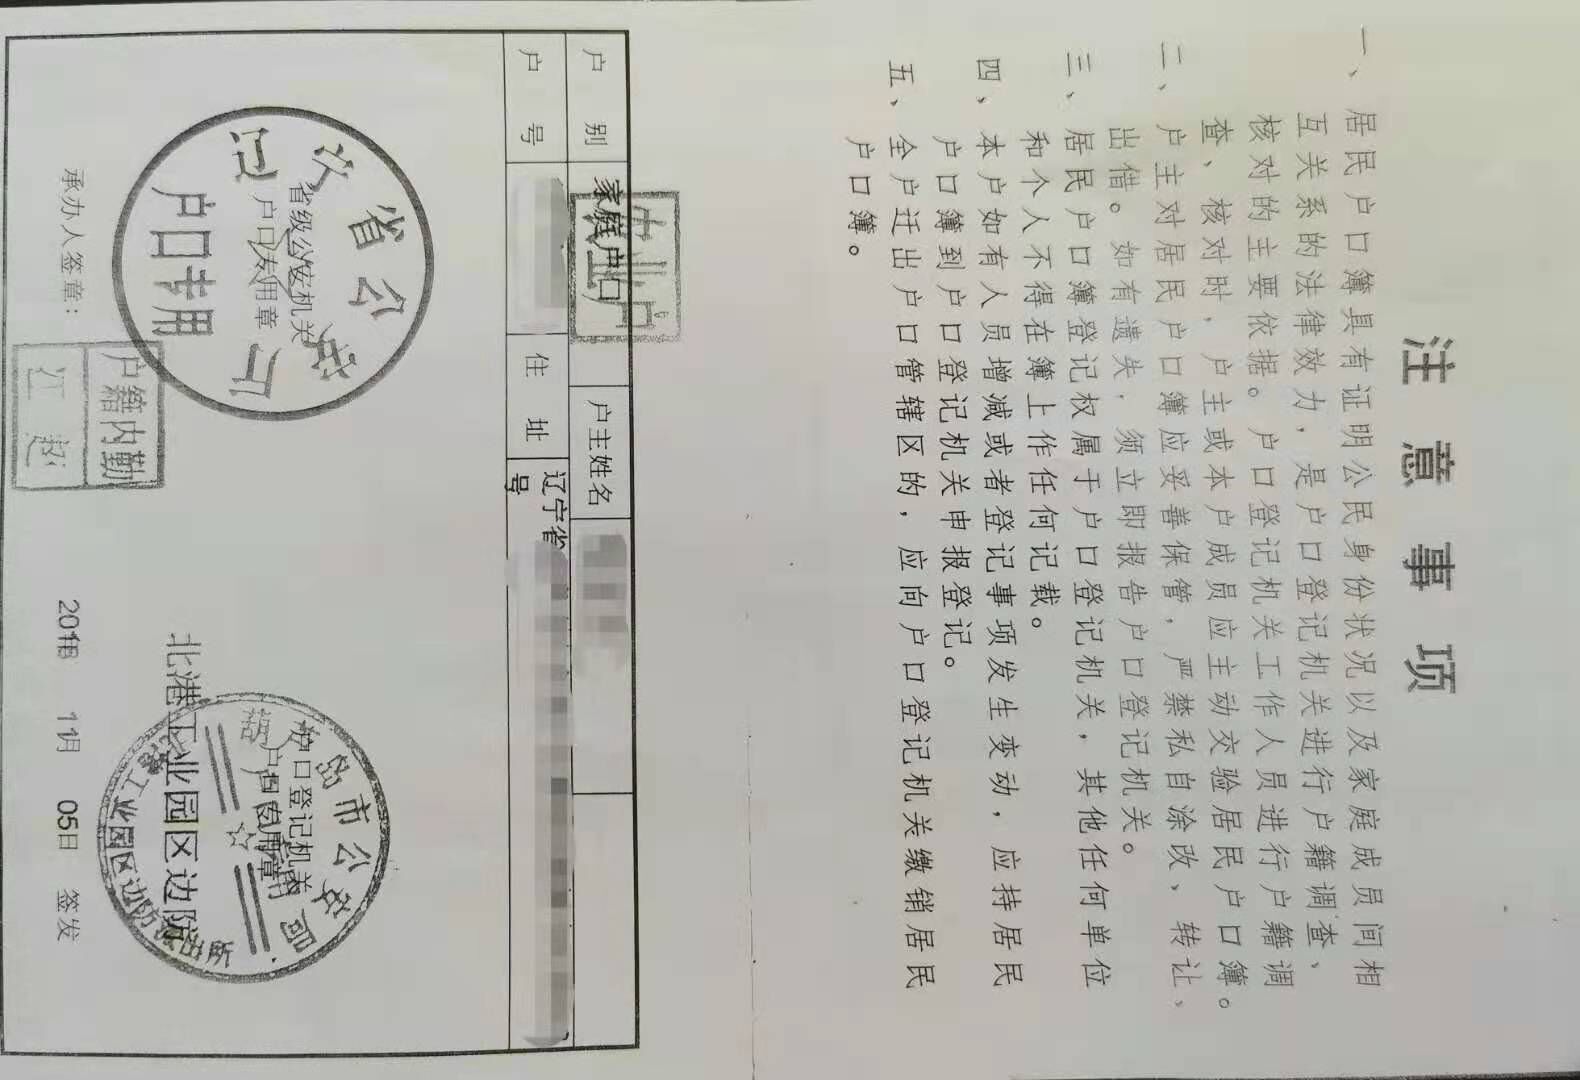 注意事项
一、居民户口簿具有证明公民身份状况以及家庭成员间相
互关系的法律效力，是户口登记机关进行户籍调查、
核对的主要依据。户口登记机关工作人员进行户籍调
查、核对时，户主或本户成员应主动交验居民户口簿。
二、户主对居民户口簿应妥善保管，严禁私自涂改、转让、
出借。如有遗失，须立即报告户口登记机关。
三、居民户口簿登记权属于户口登记机关，其他任何单位
和个人不得在簿上作任何记载。
四、本户如有人员增减或者登记事项发生变动，应持居民
户口簿到户口登记机关申报登记。
五、全户迁出户口管辖区的，应向户口登记机关缴销居民
户口簿。
户别 家庭户口 户主姓名
户号 住址 辽宁省
号
辽宁省公安厅
户口专用
省级公安机关
户口专用章
市公安局
户口登记机关
户口专用章
北港工业园区边防
承办人签章：
户籍内勤
11月 05日 签发